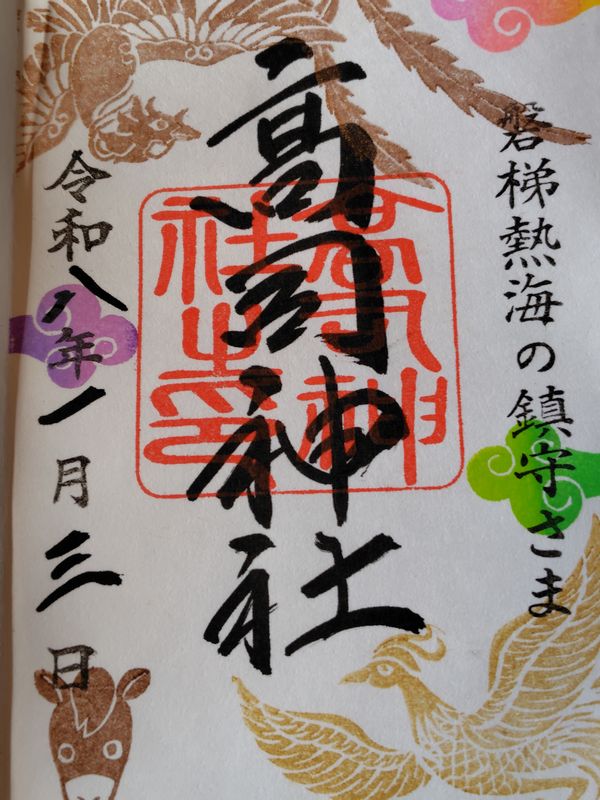 磐梯熱海の鎮守さま
高司神社
令和八年一月三日